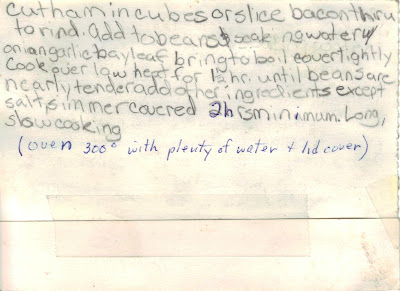 cut ham in cubes or slice bacon thru
to rind. add to beans & soaking water w/
onion garlic bay leaf bring to boil cover tightly
Cook over low heat for 1½ hr. until beans are
nearly tender add other ingredients except
salt, simmer covered 2 hrs minimum. Long,
slow cooking
(oven 300° with plenty of water + lid cover)